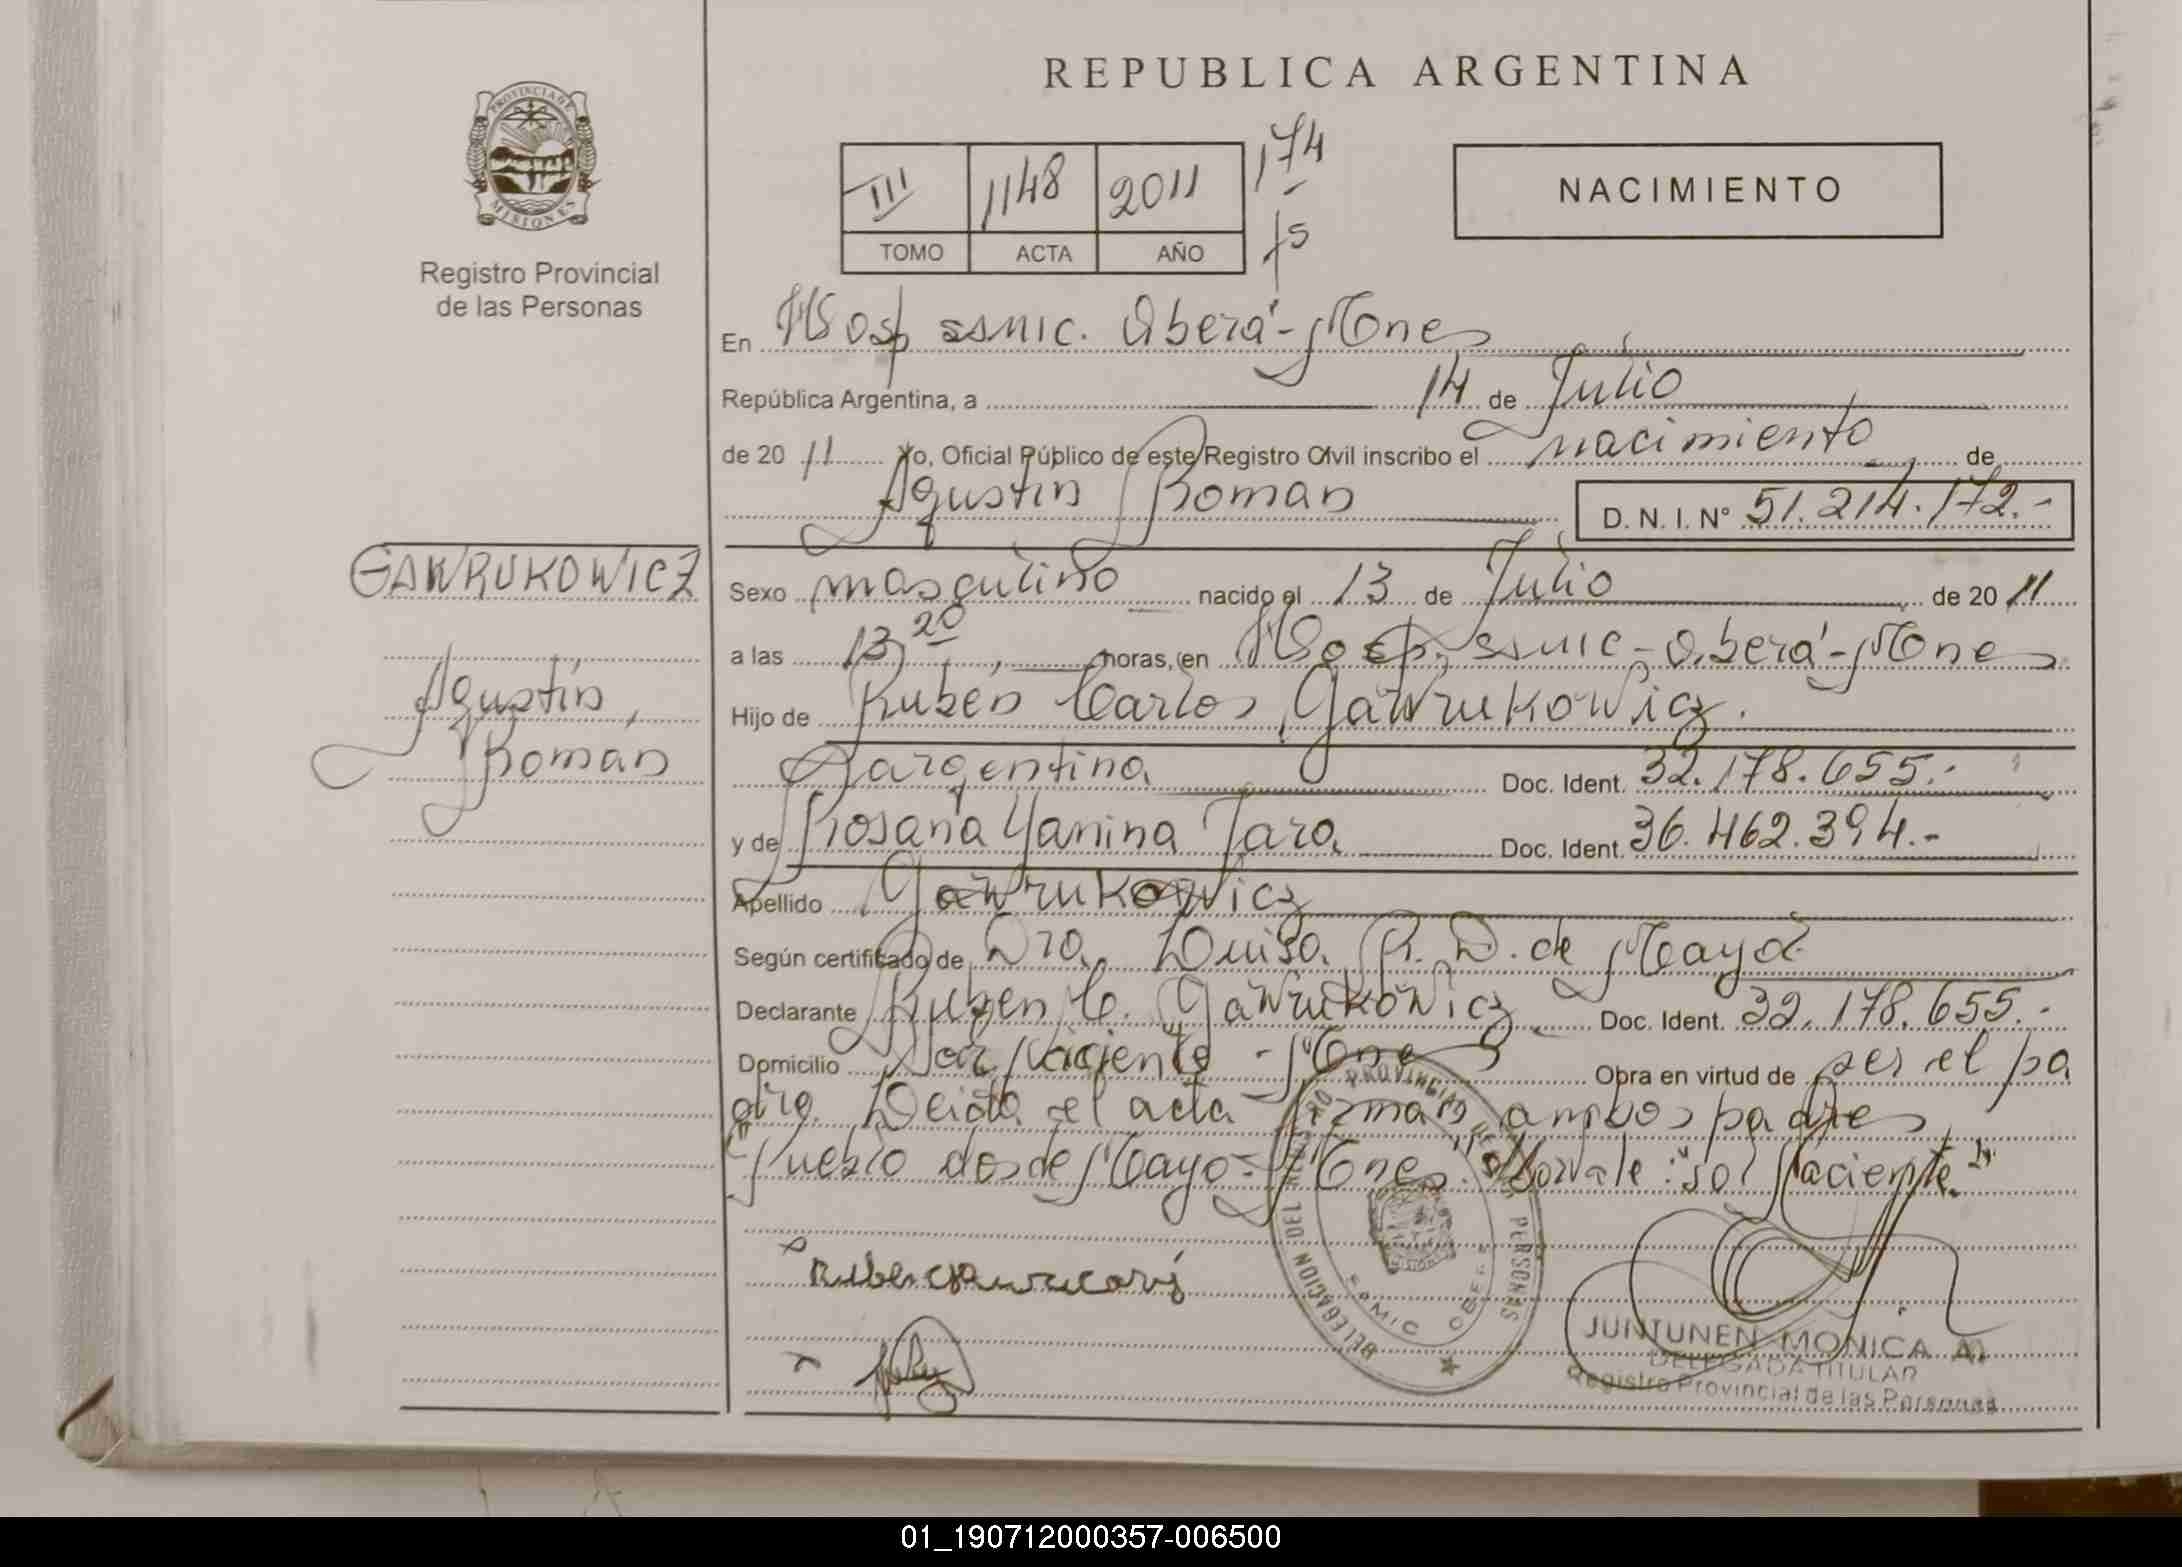 REPUBLICA ARGENTINA
PROVINCIA DE
MISIONES
Registro Provincial
de las Personas
III 1148 2011 174
TOMO ACTA AÑO
NACIMIENTO
En Hosp ssmic. Oberá - Mnes
República Argentina, a 14 de Julio
de 20 11 Yo, Oficial Público de este Registro Civil inscribo el nacimiento de
Agustín Román D. N. I. Nº 51.214.172.-
GAWRUKOWICZ
Agustín,
Román
Sexo masculino nacido el 13 de Julio de 20 11
a las 13 20, horas, en Hosp. ssmic - Oberá - Mnes
Hijo de Rubén Carlos Gawrukowicz.
argentina Doc. Ident. 32.178.655.-
y de Rosana Yanina Jara Doc. Ident. 36.462.394.-
Apellido Gawrukowicz
Según certificado de Dra. Luisa R. D. de Maya
Declarante Rubén C. Gawrukowicz Doc. Ident. 32.178.655.-
Domicilio Sol Naciente - Mnes Obra en virtud de ser el pa
dre. Leida el acta firman ambos padres
"Pueblo dos de Mayo - Mnes". No vale: "sol Naciente"
DELEGACION DEL REGISTRO PROVINCIAL DE LAS PERSONAS
SAMIC OBERA
JUNTUNEN MONICA A.
DELEGADA TITULAR
Registro Provincial de las Personas
01_190712000357-006500